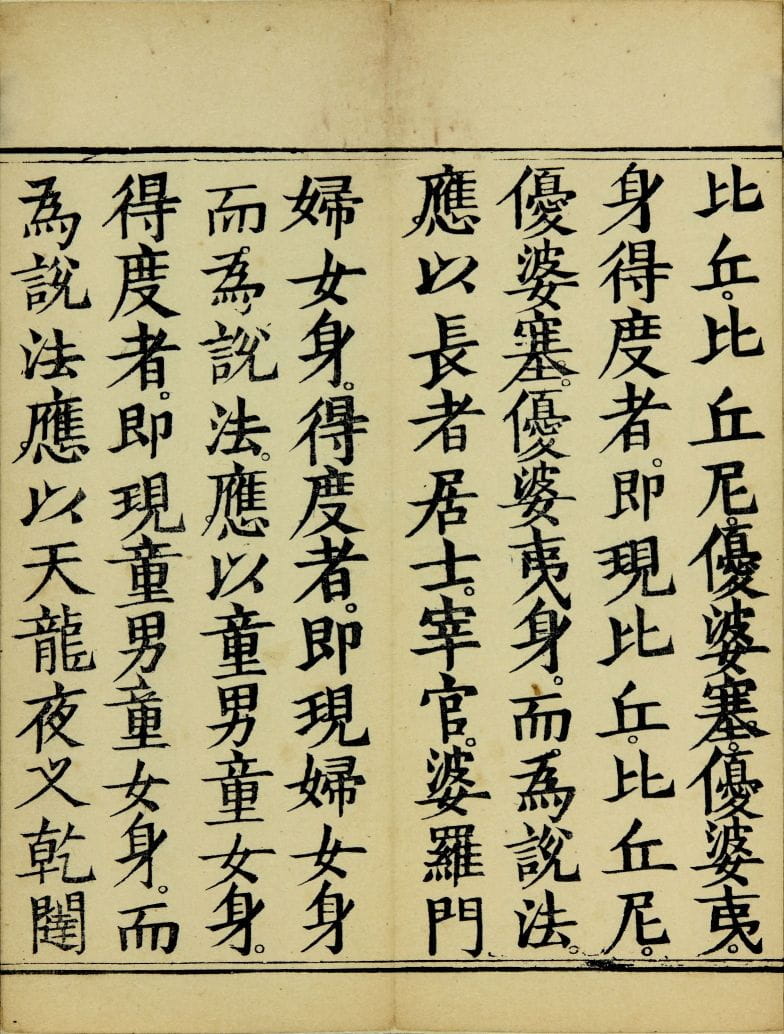 比丘。比丘尼。優婆塞。優婆夷。
身得度者。即現比丘。比丘尼。
優婆塞。優婆夷身。而。為說法。
應以長者居士。宰官。婆羅門
婦女身。得度者。即現婦女身
而。為說法。應以童男童女身。
得度者。即現童男童女身。而
為說法應以天龍夜叉乾闥